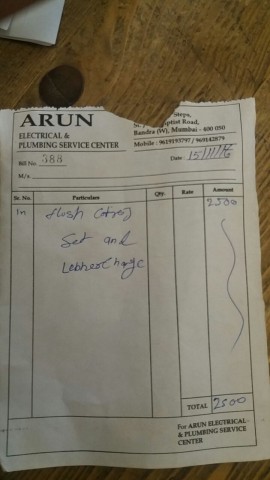 ARUN
ELECTRICAL &
PLUMBING SERVICE CENTER
Steps,
ptist Road,
Bandra (W), Mumbai - 400 050
Mobile : 9619193797 / 969142879
Bill No. 388
Date 15/11/16
M/s
Sr. No. Particulars Qty. Rate Amount
1n flush 2500
Set and
TOTAL 2500
For ARUN ELECTRICAL
& PLUMBING SERVICE
CENTER